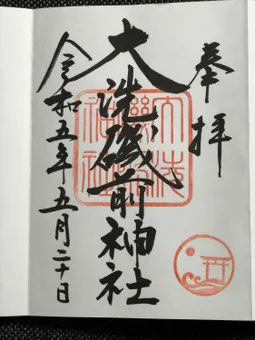 奉拝
大洗磯前神社
令和五年五月二十日